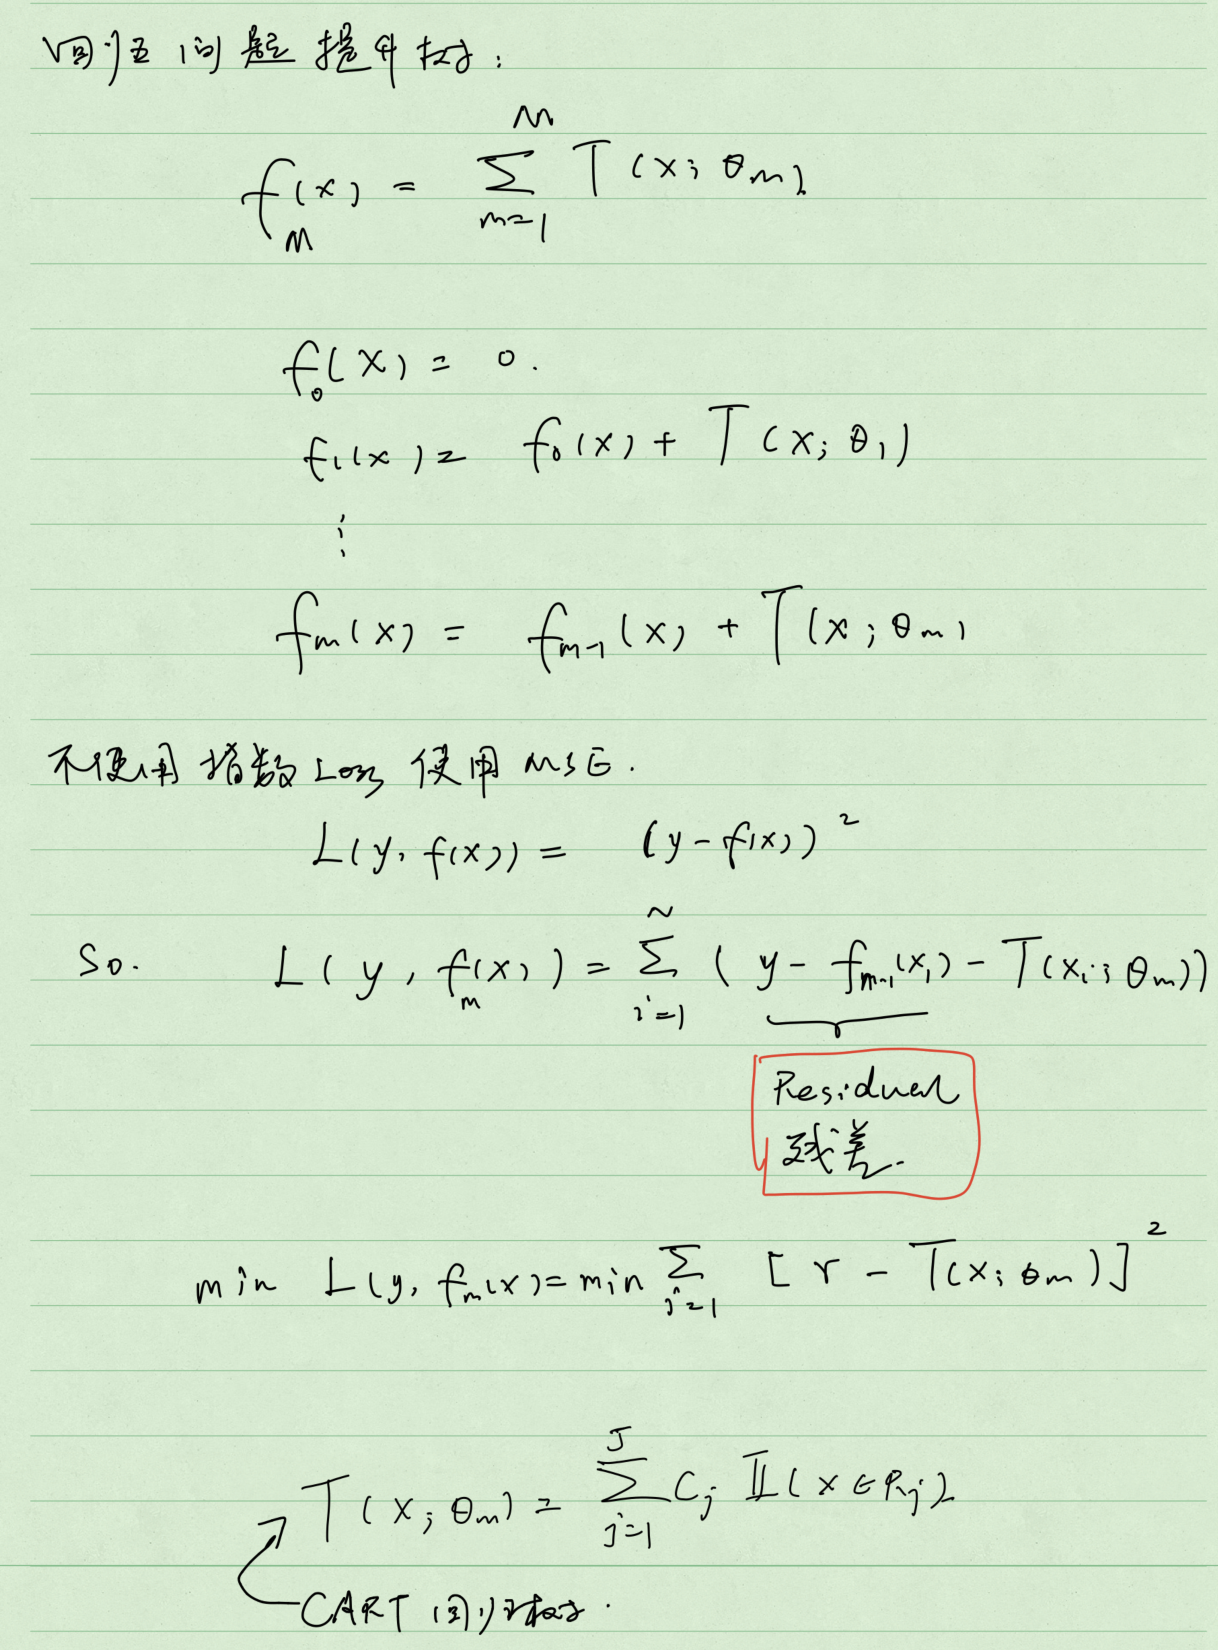 回归问题提升树:
f_M(x) = \sum_{m=1}^{M} T(x; θ_m)
f_0(x) = 0.
f_1(x) = f_0(x) + T(x; θ_1)
⋮
f_m(x) = f_{m-1}(x) + T(x; θ_m)
不使用指数Loss 使用 MSE.
L(y, f(x)) = (y - f(x))^2
So. L(y, f_m(x)) = \sum_{i=1}^{N} (y - f_{m-1}(x_i) - T(x_i; θ_m))
Residual
残差.
min L(y, f_m(x) = min \sum_{i=1} [r - T(x; θ_m)]^2
T(x; θ_m) = \sum_{j=1}^{J} C_j 𝕀(x ∈ R_j)
CART 回归树.